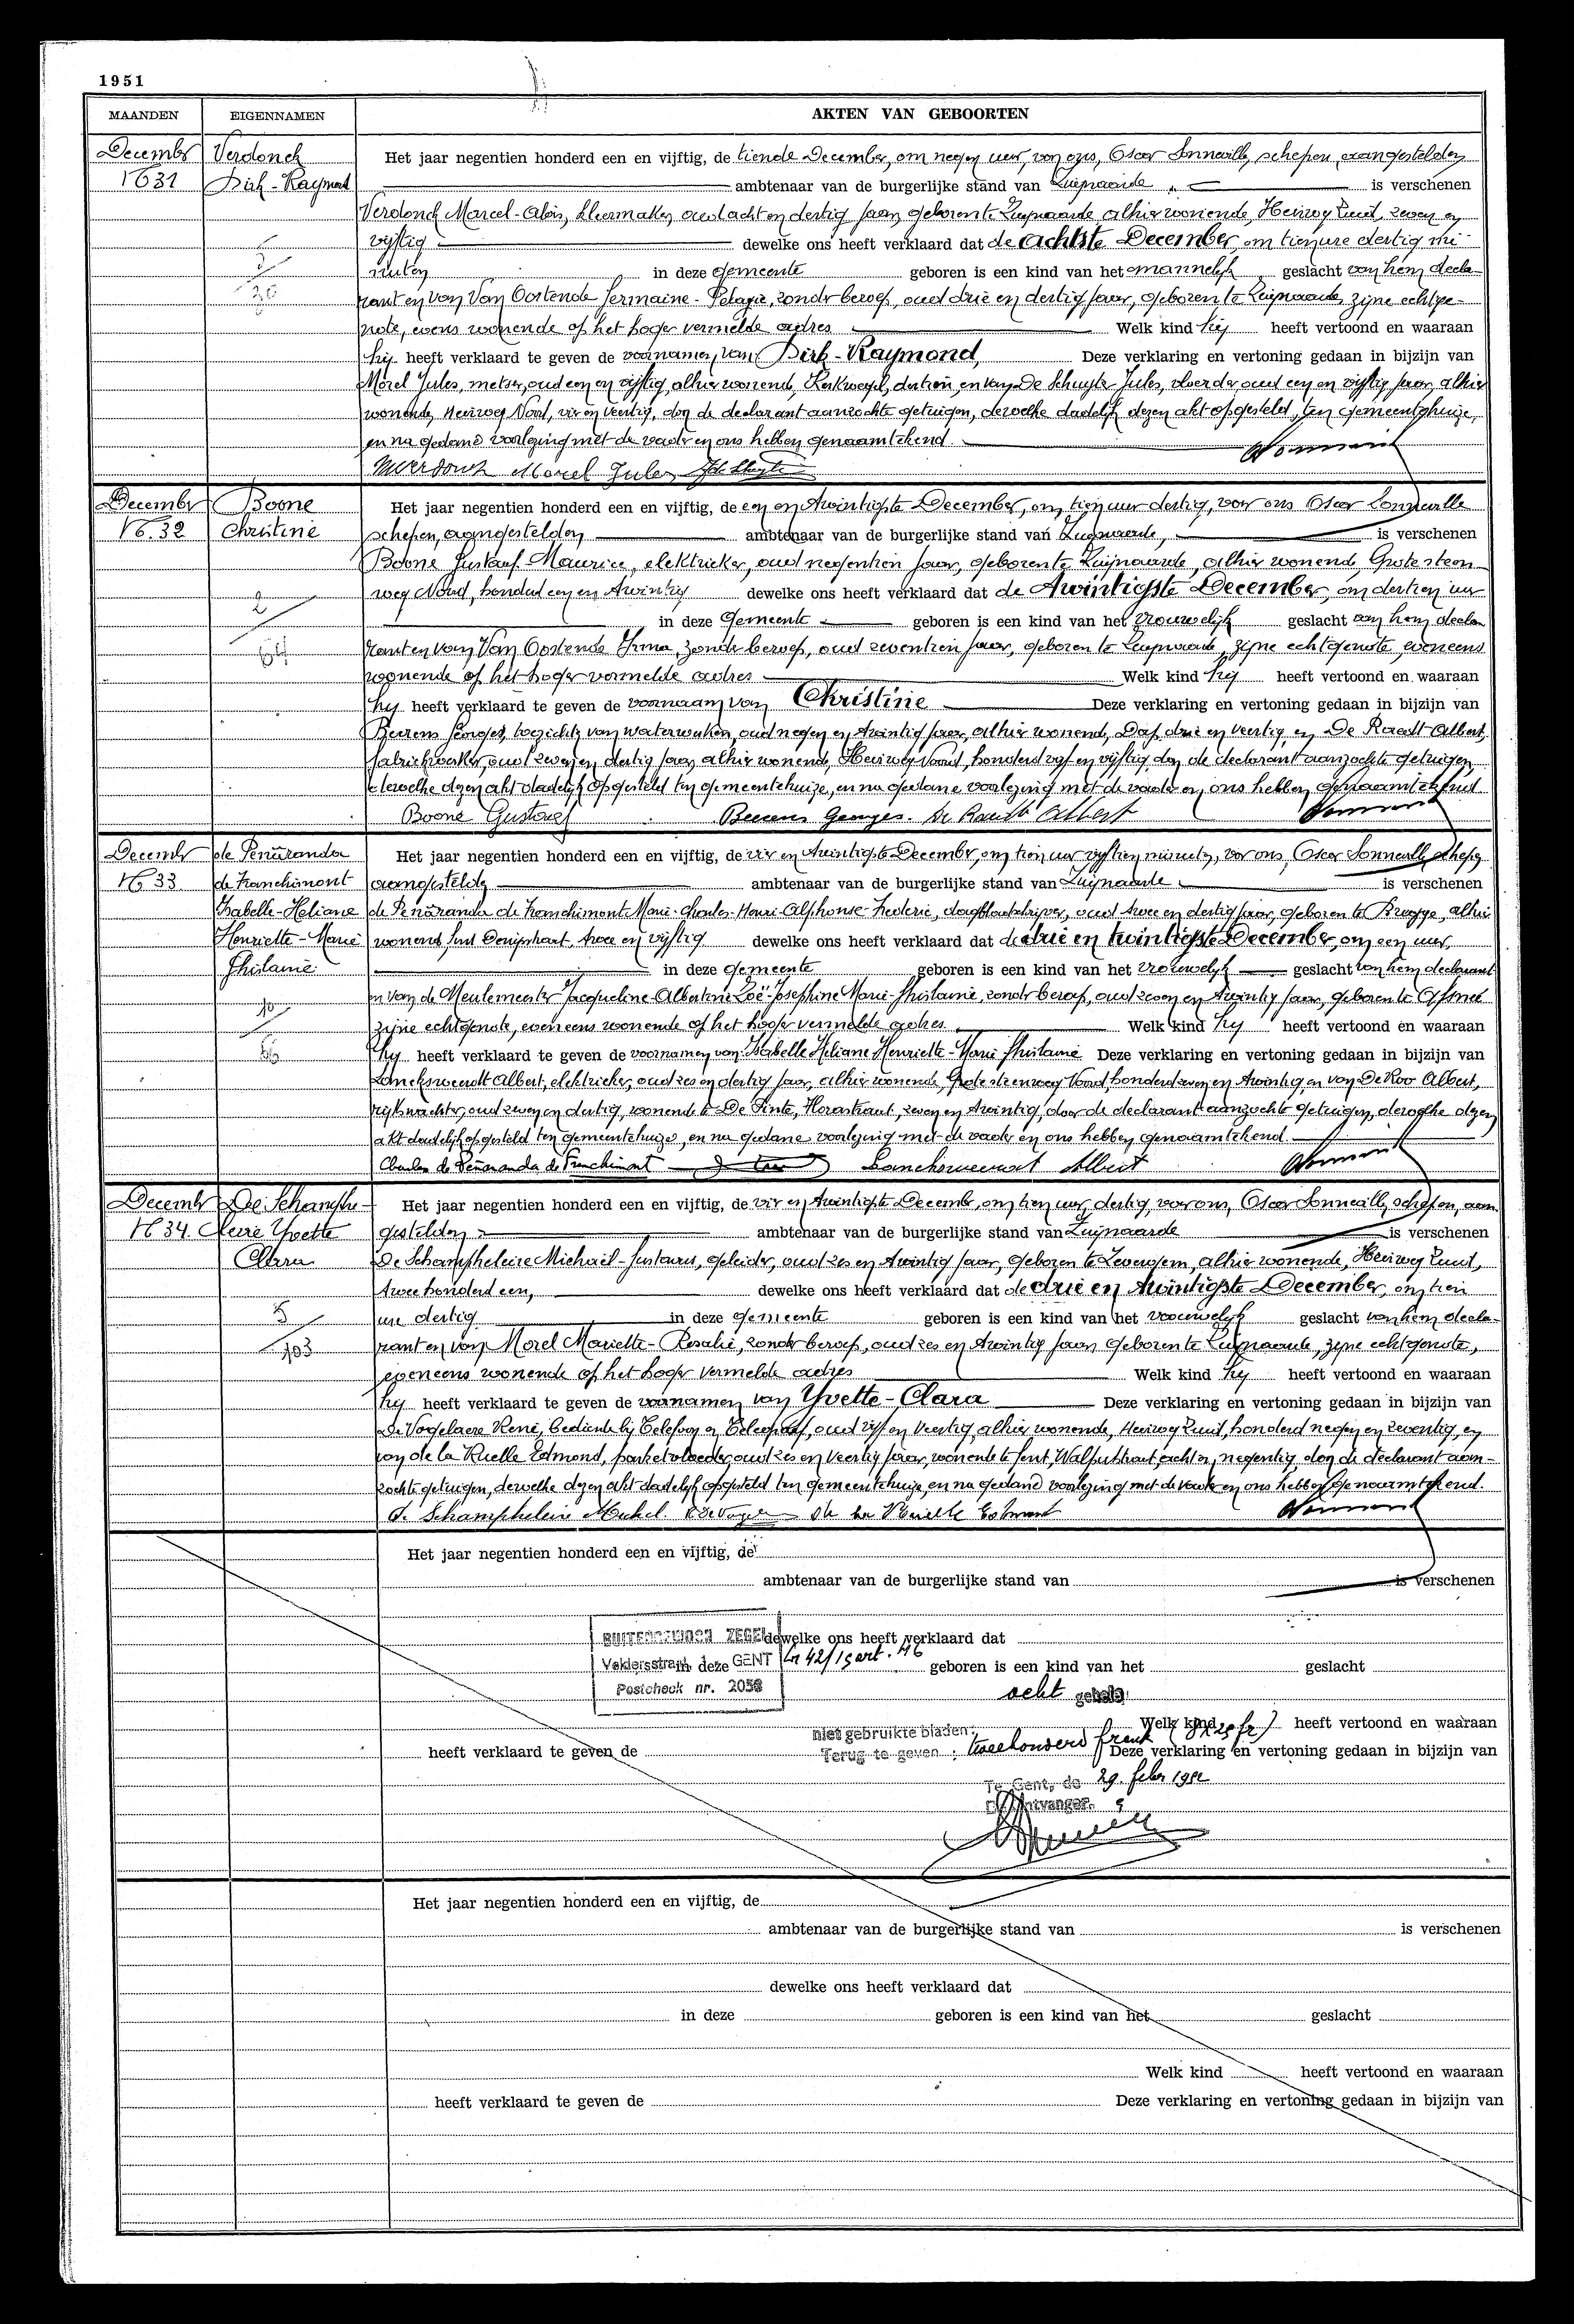 1951
MAANDEN EIGENNAMEN AKTEN VAN GEBOORTEN
December Verdonck Het jaar negentien honderd een en vijftig, de tiende December, om negen uur, voor ons, Oscar Sonneville, schepen, aangestelden
N° 31 Dirk-Raymond ambtenaar van de burgerlijke stand van Zwijnaarde is verschenen
Verdonck Marcel-Aloïs, kleermaker, oud acht en dertig jaar, geboren te Zwijnaarde alhier wonende, Heirweg Zuid, zeven en
vijftig dewelke ons heeft verklaard dat de achtste December, om tien ure dertig mi-
nuten in deze gemeente geboren is een kind van het mannelijk geslacht van hem decla-
rant en van Van Oostende Germaine-Pelagie, zonder beroep, oud drie en dertig jaar, geboren te Zwijnaarde, zijne echtge-
note, evens wonende op het hoger vermelde adres Welk kind hij heeft vertoond en waaraan
hij heeft verklaard te geven de voornamen van Dirk-Raymond, Deze verklaring en vertoning gedaan in bijzijn van
Morel Jules, metser, oud een en vijftig, alhier wonend, Kerkwegel, dertien, en van De Schuyter Jules, vloerder, oud een en vijftig jaar, alhier
wonende, Heirweg Noord, vier en veertig, door de declarant aanzochte getuigen, dewelke dadelijk dezen akt opgesteld, ten gemeentehuize,
en na gedane voorlezing met de vader en ons hebben genaamtekend.
MVerdonck Morel Jules
December Boone Het jaar negentien honderd een en vijftig, de een en twintigste December, om tien uur dertig, voor ons Oscar Sonneville
N° 32 Christine schepen, aangestelden ambtenaar van de burgerlijke stand van Zwijnaarde, is verschenen
Boone Gustaaf Maurice, elektrieker, oud negentien jaar, geboren te Zwijnaarde, alhier wonend Grote steen-
weg Noord, honderd een en twintig dewelke ons heeft verklaard dat de twintigste December, om dertien uur
2 in deze gemeente geboren is een kind van het vrouwelijk geslacht van hem decla-
64 rant en van Van Oostende Irma, zonder beroep, oud zeventien jaar, geboren te Zwijnaarde, zijne echtgenote, eveneens
wonende op het hoger vermelde adres Welk kind hij heeft vertoond en waaraan
hij heeft verklaard te geven de voornaam van Christine Deze verklaring en vertoning gedaan in bijzijn van
Beurens Georges, toezichter van waterwerken, oud negen en twintig jaar, alhier wonend, Dorp, drie en veertig, en De Raedt Albert,
fabriekwerker, oud zeven en dertig jaar, alhier wonend, Heirweg Noord, honderd vijf en vijftig, door de declarant aanzochte getuigen,
dewelke dezen akt dadelijk opgesteld ten gemeentehuize, en na gedane voorlezing met de vader en ons hebben genaamtekend
Boone Gustaaf Beurens Georges. De Raedt Albert
December de Peñaranda Het jaar negentien honderd een en vijftig, de vier en twintigste December, om tien uur vijftien minuten, voor ons, Oscar Sonneville, schepen
N° 33 de Franchimont aangestelden ambtenaar van de burgerlijke stand van Zwijnaarde is verschenen
Isabelle-Heliane de Peñaranda de Franchimont Marie-Charles-Henri-Alphonse-Frederic, dagbladschrijver, oud twee en dertig jaar, geboren te Brugge, alhier
Henriette-Marie wonend, twee en vijftig dewelke ons heeft verklaard dat de drie en twintigste December, om een uur,
Ghislaine in deze gemeente geboren is een kind van het vrouwelijk geslacht van hem declarant
10 en van de Meulemeester Jacqueline-Albertine Zoë-Josephine Marie-Ghislaine, zonder beroep, oud zeven en twintig jaar, geboren te
zijne echtgenote, eveneens wonende op het hoger vermelde adres Welk kind hij heeft vertoond en waaraan
66 hij heeft verklaard te geven de voornamen van Isabelle Heliane Henriette-Marie Ghislaine Deze verklaring en vertoning gedaan in bijzijn van
Lanckswe​erdt Albert, elektrieker, oud zes en dertig jaar, alhier wonende, Grote steenweg Noord, honderd zeven en twintig, en van De Roo Albert,
rijkswachter, oud zeven en dertig, wonende te De Pinte, zeven en twintig, door de declarant aanzochte getuigen, dewelke dezen
akt dadelijk opgesteld ten gemeentehuize, en na gedane voorlezing met de vader en ons hebben genaamtekend.
Charles de Peñaranda de Franchimont Albert
December De Schamphe- Het jaar negentien honderd een en vijftig, de vier en twintigste December, om tien uur, dertig, voor ons, Oscar Sonneville, schepen, aan-
N° 34. leire Yvette gestelden ambtenaar van de burgerlijke stand van Zwijnaarde is verschenen
Clara De Schampheleire Michaël-Gustaaf, geleider, oud zes en twintig jaar, geboren te Zevergem, alhier wonende, Heirweg Zuid,
twee honderd een, dewelke ons heeft verklaard dat de drie en twintigste December, om tien
5 ure dertig in deze gemeente geboren is een kind van het vrouwelijk geslacht van hem decla-
103 rant en van Morel Mariette-Rosalie, zonder beroep, oud zes en twintig jaar geboren te Zwijnaarde, zijne echtgenote,
eveneens wonende op het hoger vermelde adres Welk kind hij heeft vertoond en waaraan
hij heeft verklaard te geven de voornamen van Yvette-Clara Deze verklaring en vertoning gedaan in bijzijn van
De Vogelaere René, bediende bij Telefoon en Telegraaf, oud vijf en veertig, alhier wonende, Heirweg Zuid, honderd negen en zeventig, en
van de la Ruelle Edmond, parketvloerder, oud zes en veertig jaar, wonende te Gent, acht en negentig door de declarant aan-
zochte getuigen, dewelke dezen akt dadelijk opgesteld ten gemeentehuize, en na gedane voorlezing met de vader en ons hebben genaamtekend.
De Schampheleire Michel. de la Ruelle Edmond
Het jaar negentien honderd een en vijftig, de
ambtenaar van de burgerlijke stand van is verschenen
BUITENGEWOON ZEGEL dewelke ons heeft verklaard dat
GENT in deze geboren is een kind van het geslacht
Postcheck nr. 2058 acht
niet gebruikte bladen: Welk kind heeft vertoond en waaraan
heeft verklaard te geven de Terug te geven: tweehonderd frank Deze verklaring en vertoning gedaan in bijzijn van
Te Gent, de 29. febr 1952
Ontvanger.
Het jaar negentien honderd een en vijftig, de
ambtenaar van de burgerlijke stand van is verschenen
dewelke ons heeft verklaard dat
in deze geboren is een kind van het geslacht
Welk kind heeft vertoond en waaraan
heeft verklaard te geven de Deze verklaring en vertoning gedaan in bijzijn van